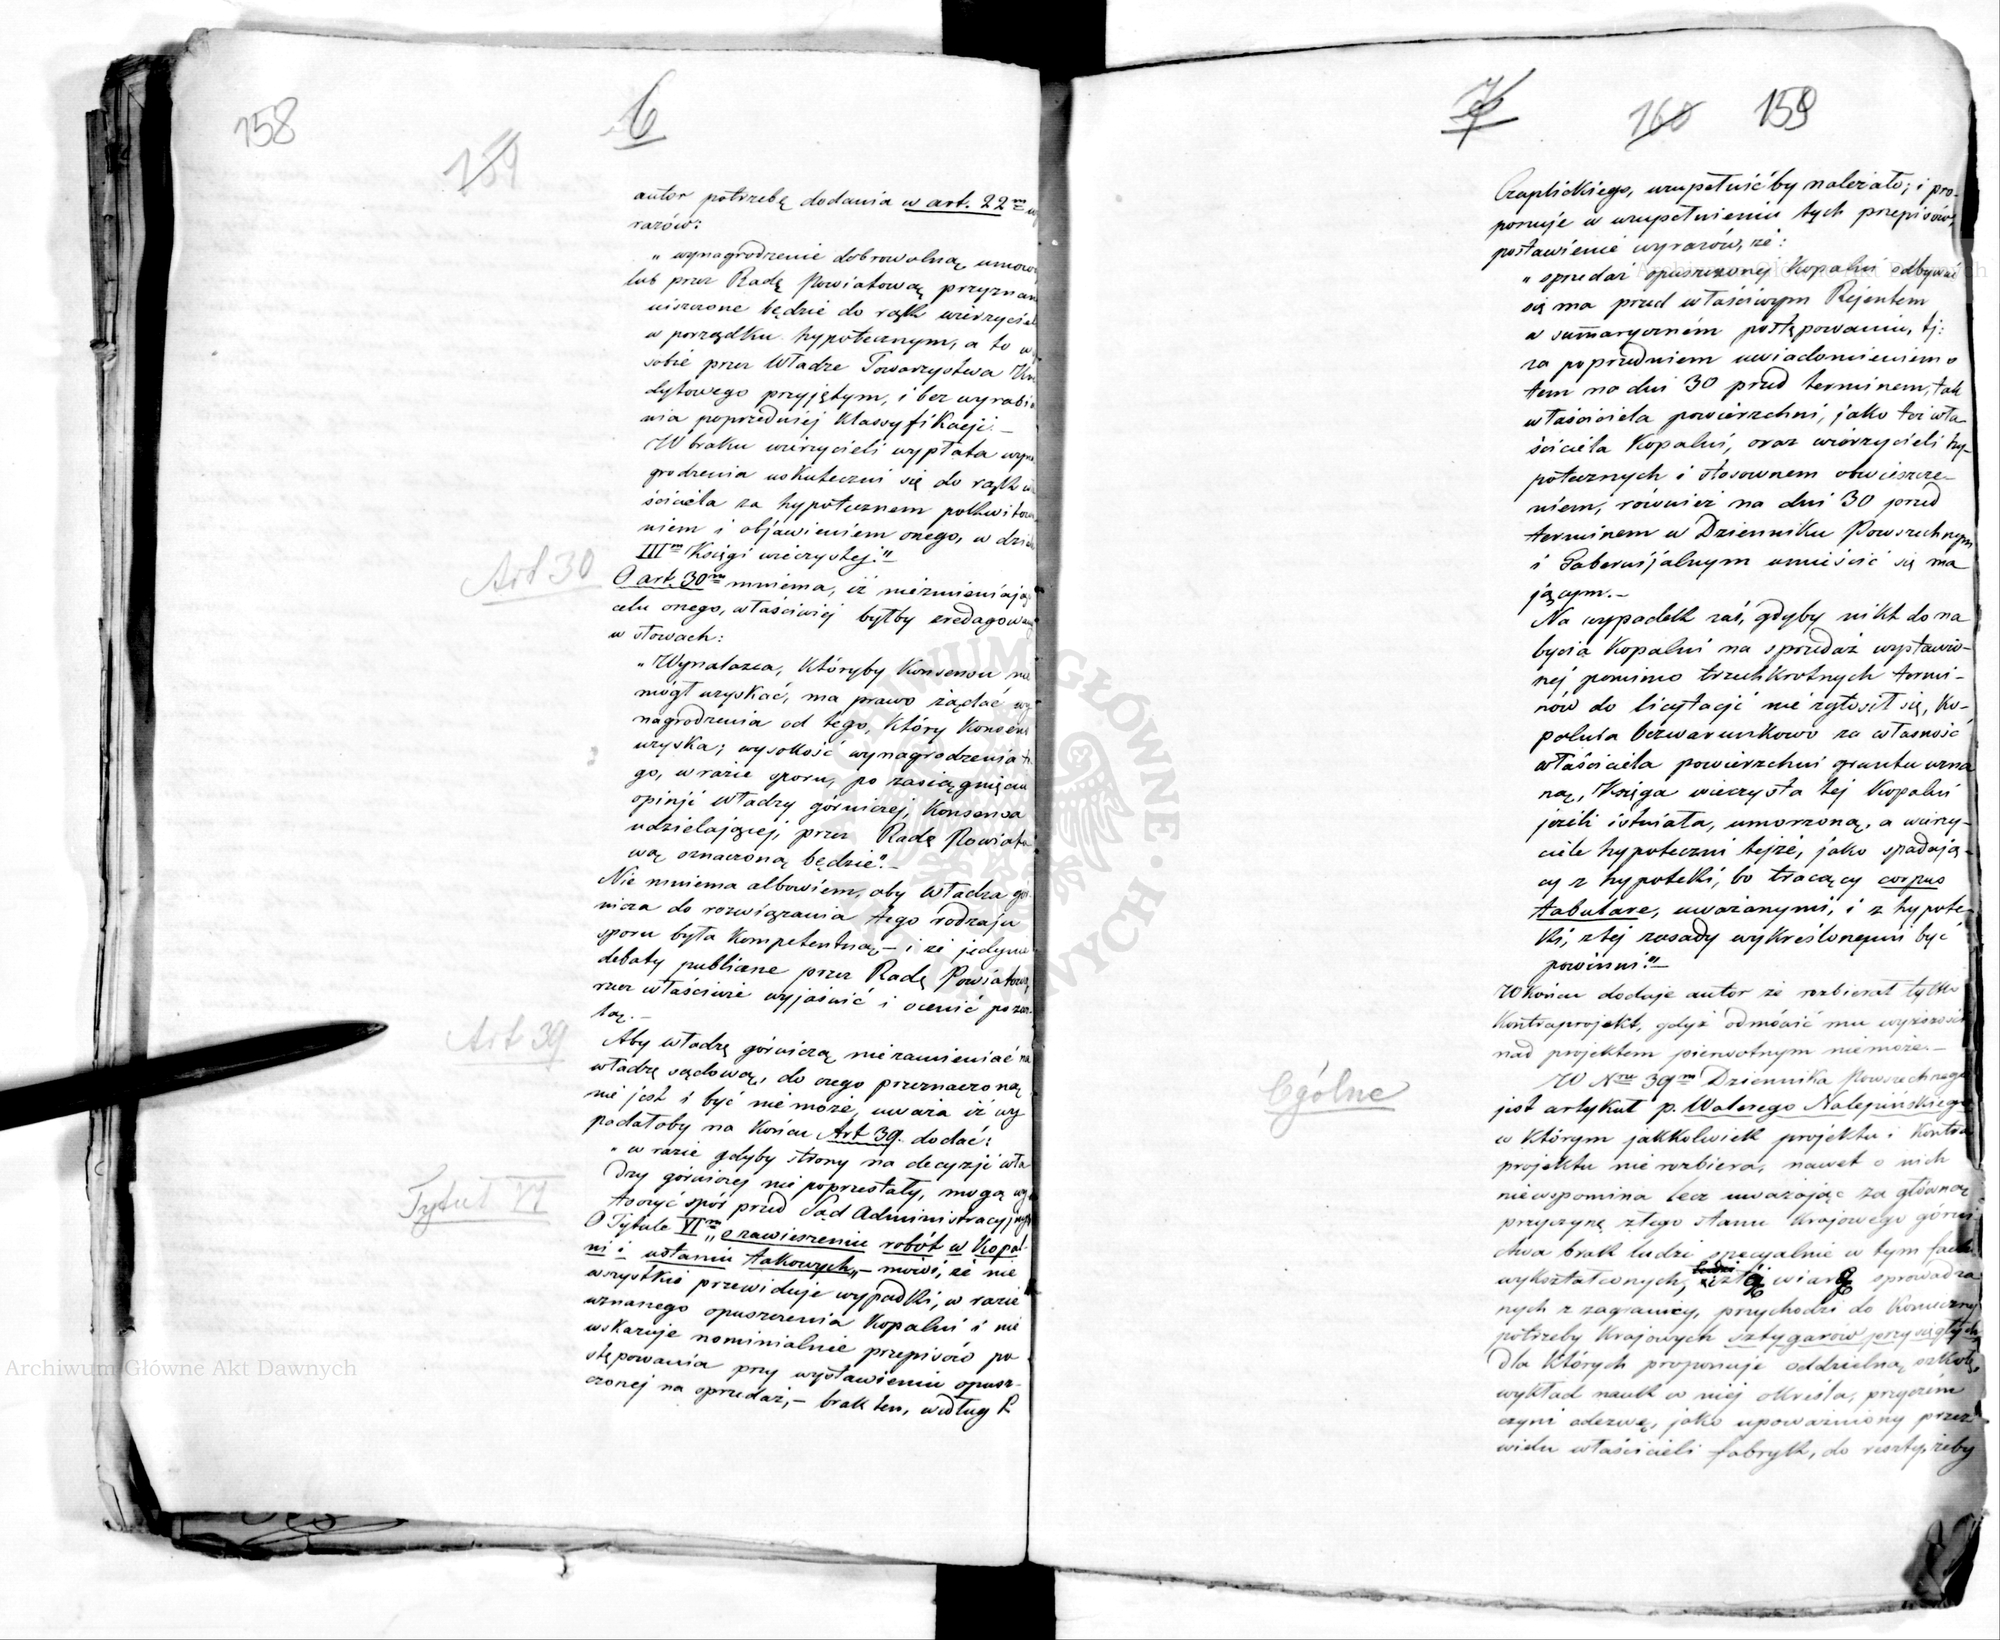 158
159
6
autor potrzebę dodania w art. 22m wy
razów:
„ wynagrodzenie dobrowolną umow
lub przez Radę Powiatową przyznan
uiszczone będzie do rąk wierzyciel
w porządku hypotecznym, a to w
sobie przez Władze Towarzystwa Kre
dytowego przyjętym, i bez wyrabia
nia poprzedniéj Klassyfikacji.—
W braku wierzycieli wypłata wyna
grodzenia uskuteczni się do rąk wł
ściciela za hypotecznem pokwitowa
niem i objawieniem onego, w dzia
IIIm Księgi wieczystej."—
Art 30
O art. 30m mniema, iż niezmieniając
celu onego, właściwiéj byłby zredagowany
w słowach:
„ Wynalazca, któryby Konsensu nie
mógł uzyskać, ma prawo żądać wy
nagrodzenia od tego, który Konsens
uzyska; wysokość wynagrodzenia te
go, w razie sporu, po zasiągnięciu
opinji władzy górniczej, Konsensa
udzielającej, przez Radę Powiato
wą oznaczoną będzie".—
Nie mniema albowiem, aby władza gór
nicza do rozwiązania tego rodzaju
sporu była Kompetentną,— i że jedynie
debaty publiczne przez Radę Powiatową
rzecz właściwie wyjaśnić i ocenić pozwo
lą.—
Art 39
Aby władzę górniczą nie zamieniać na
władzę sądową, do czego przeznaczoną
nie jest i być nie może, uważa iż wy
padałoby na końcu Art 39. dodać:
„ w razie gdyby strony na decyzji wła
dzy górniczej nie poprzestały, mogą wy
toczyć spór przed Sąd Administracyjny"
Tytuł VI
O Tytule VIm „o zawieszeniu robót w Kopal-
ni i ustaniu takowych,,— mówi, że nie
wszystkie przewiduje wypadki, w razie
uznanego opuszczenia Kopalni i nie
wskazuje nominialnie przepisów po
stępowania przy wystawieniu opusz-
czonej na sprzedaż,— brak ten, według P.
7
160
159
Czaplickiego, uzupełnićby należało; i pro-
ponuje w uzupełnieniu tych przepisów,
postawienie wyrazów, że:
„ sprzedaż opuszczonej Kopalni odbywać
się ma przed właściwym Rejentem
w summaryczném postępowaniu, tj:
za poprzedniem uwiadomieniem o
tem na dni 30 przed terminem, tak
właściciela powierzchni, jako też wła-
ściciela Kopalni, oraz wierzycieli hy-
potecznych i stosownem obwieszcze-
niem, również na dni 30 przed
terminem w Dzienniku Powszechnym
i Gubernjalnym umieścić się ma
jącym.—
Na wypadek zaś, gdyby nikt do na
bycia Kopalni na sprzedaż wystawio-
néj pomimo trzechkrotnych termi-
nów do licytacji nie zgłosił się, Ko-
palnia bezwarunkowo za własność
właściciela powierzchni gruntu uzna
ną, Księga wieczysta tej Kopalni
jeżeli istniała, umorzoną, a wierzy-
ciele hypoteczni tejże, jako spadają-
cy z hypoteki, bo tracący corpus
tabulare, uważanymi, i z hypote-
ki, z tej zasady wykreślonymi być
powinni."—
W końcu dodaje autor że rozbierał tylko
Kontraprojekt, gdyż odmówić mu wyższości
nad projektem pierwotnym nie może.—
Ogólne
W Nrze 39m Dziennika Powszechnego
jest artykuł p. Walerego Nalepińskiego
w którym jakkolwiek projektu i Kontra
projektu nie rozbiera, nawet o nich
niewspomina lecz uważając za główną
przyczynę złego stanu Krajowego górni
ctwa brak ludzi specyalnie w tym fach
wykształconych, i złą wiarę sprowadza
nych z zagranicy, przychodzi do Konieczné
potrzeby Krajowych sztygarów przysięgłych,
dla których proponuje oddzielną szkołę,
wykład nauk w niej określa, przyczem
czyni odezwę, jako upoważniony przez
wielu właścicieli fabryk, do reszty, żeby
Archiwum Główne Akt Dawnych